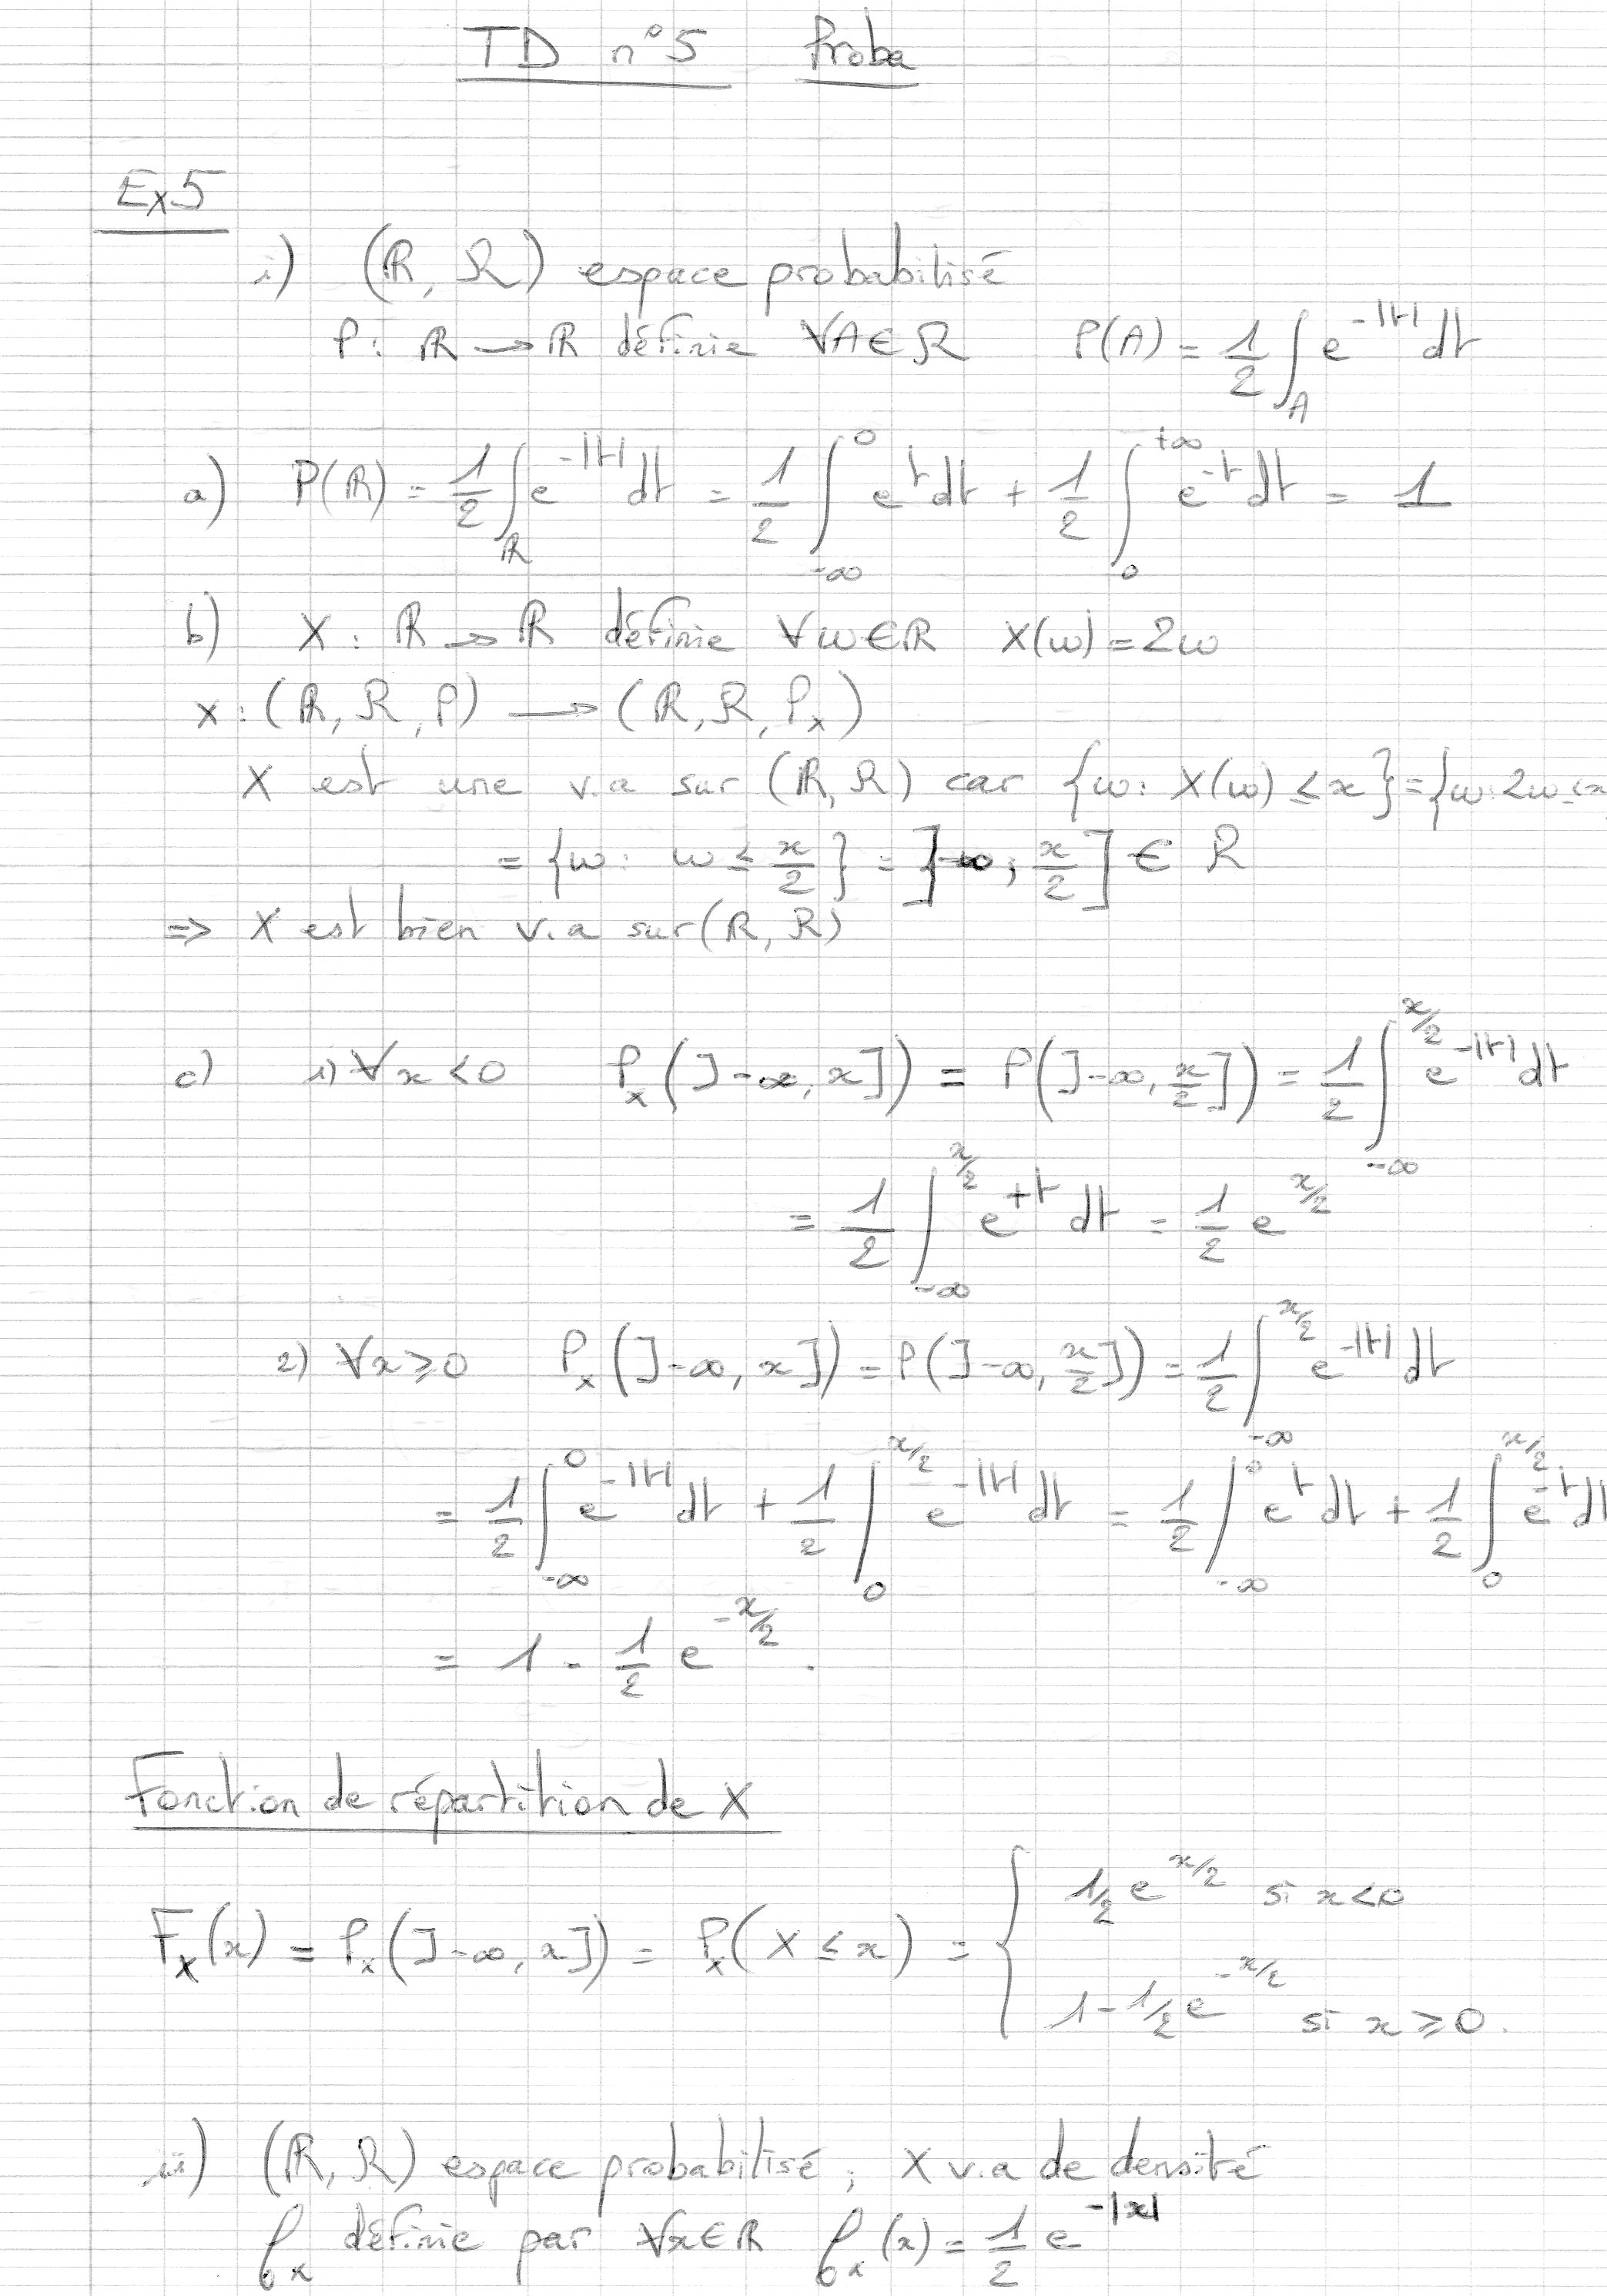 TD n°5 Proba
Ex5
i) (ℝ, 𝓡) espace probabilisé
P: ℝ → ℝ définie ∀A∈𝓡 P(A) = 1/2 ∫_A e^{-|t|} dt
a) P(ℝ) = 1/2 ∫_ℝ e^{-|t|} dt = 1/2 ∫_{-∞}^0 e^t dt + 1/2 ∫_0^{+∞} e^{-t} dt = 1
b) X: ℝ → ℝ définie ∀ω∈ℝ X(ω) = 2ω
X: (ℝ, 𝓡, P) → (ℝ, 𝓡, P_X)
X est une v.a sur (ℝ, 𝓡) car {ω: X(ω) ≤ x} = {ω: 2ω ≤ x
= {ω: ω ≤ x/2} = ]-∞; x/2] ∈ 𝓡
⇒ X est bien v.a sur (ℝ, 𝓡)
c) 1) ∀x<0 P_X(]-∞, x]) = P(]-∞, x/2]) = 1/2 ∫_{-∞}^{x/2} e^{-|t|} dt
= 1/2 ∫_{-∞}^{x/2} e^{+t} dt = 1/2 e^{x/2}
2) ∀x≥0 P_X(]-∞, x]) = P(]-∞, x/2]) = 1/2 ∫_{-∞}^{x/2} e^{-|t|} dt
= 1/2 ∫_{-∞}^0 e^{-|t|} dt + 1/2 ∫_0^{x/2} e^{-|t|} dt = 1/2 ∫_{-∞}^0 e^t dt + 1/2 ∫_0^{x/2} e^{-t} dt
= 1 - 1/2 e^{-x/2}.
Fonction de répartition de X
F_X(x) = P_X(]-∞, x]) = P_X(X ≤ x) = { 1/2 e^{x/2} si x<0
1 - 1/2 e^{-x/2} si x ≥ 0.
ii) (ℝ, 𝓡) espace probabilisé, X v.a de densité
f_X définie par ∀x∈ℝ f_X(x) = 1/2 e^{-|x|}